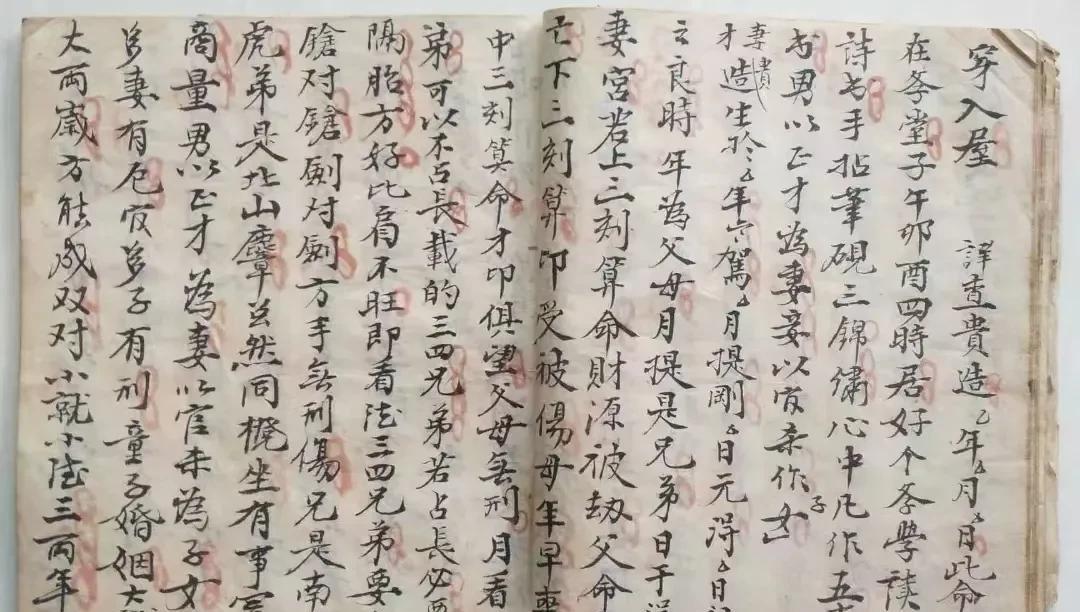 穿入屋 詳查貴造〻年〻月〻日此命
在孝堂子午卯酉四時居好个孝學讀
詩书手拈筆硯三錦繡心中凡作五
书男以正才為妻妾以官杀作子女
才妻憒造生於〻年六駕〻月提剛〻日元淂〻日
之良時年為父母月提是兄弟日于
妻宮若上三刻算命財源被劫父命
亡下三刻算印受被傷母年早喪
中三刻算命才印俱望父母無刑月看
弟可以不占長載的三四兄弟若占長必要
隔胎方好比肩不旺即看陆三四兄弟要
鎗对鎗劍对劍方手無刑傷兄是南
虎弟是北山麞卓然同櫈坐有事
商量男以正才為妻以官未為子女
多妻有厄官多子有刑童子婚姻大
大两歲方能成双对小就小陆三両年